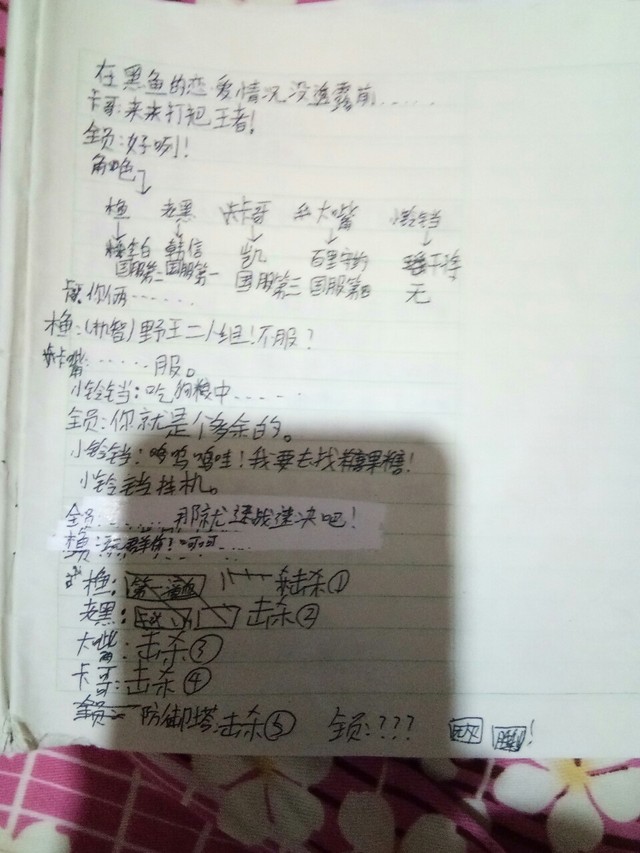 在黑鱼的恋爱情况没透露前......
卡哥:来来打把王者!
全员:好咧!
角色
渔 老黑 卡哥 大嘴 小铃铛
李白 韩信 凯 百里守约 干将
国服第二 国服第一 国服第三 国服第四 无
卡:你俩......
渔:(机智)野王二人组!不服?
卡嘴......服。
小铃铛:吃狗粮中.....
全员:你就是个多余的。
小铃铛:呜呜呜哇!我要去找糖果糖!
小铃铛挂机。
全员:......那就速战速决吧!
渔: 击杀①
老黑: 击杀②
大嘴:击杀③
卡哥:击杀④
全员 防御塔:击杀⑤ 全员:???